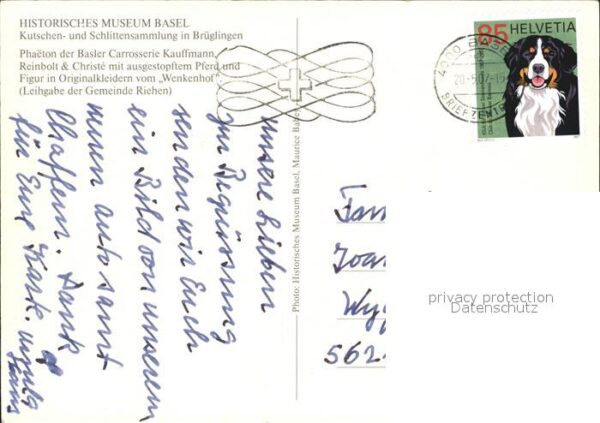 HISTORISCHES MUSEUM BASEL
Kutschen- und Schlittensammlung in Brüglingen
Phaëton der Basler Carrosserie Kauffmann,
Reinbolt & Christé mit ausgestopftem Pferd und
Figur in Originalkleidern vom „Wenkenhof".
(Leihgabe der Gemeinde Riehen)
unsere Lieben
zur Begrüssung
senden wir Euch
ein Bild von unserem
neuen auto samt
Chauffeur. Dank
für Eure Karte.
Photo: Historisches Museum Basel, Maurice Babey
85 HELVETIA
4000 BASEL
BRIEFZENTR
Fam
Joa
Wy
562
privacy protection
Datenschutz